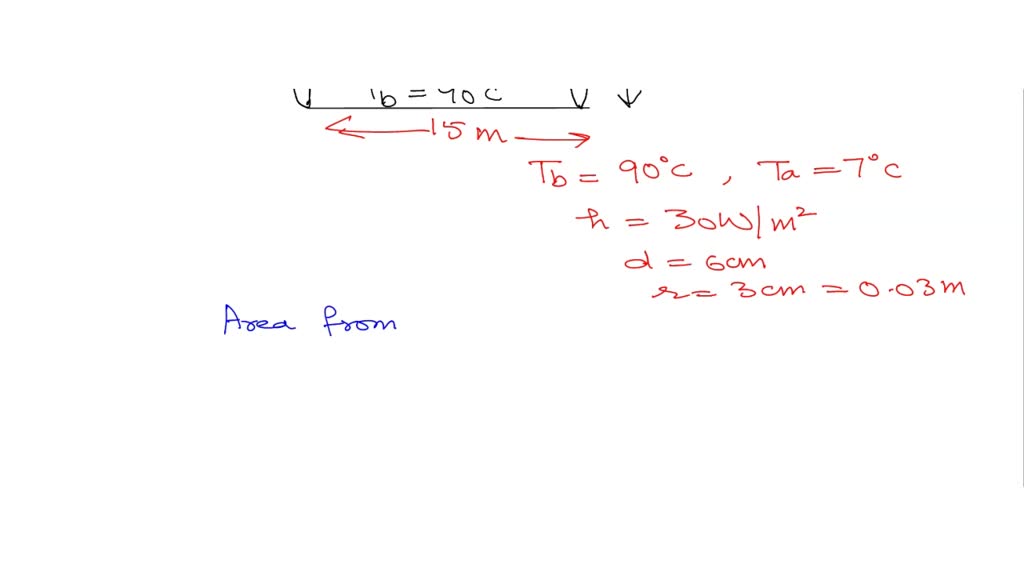 Tb = 90°C
15 m
Tb = 90°C , Ta = 7°C
h = 30W/m²
d = 6cm
r = 3cm = 0.03m
Area from